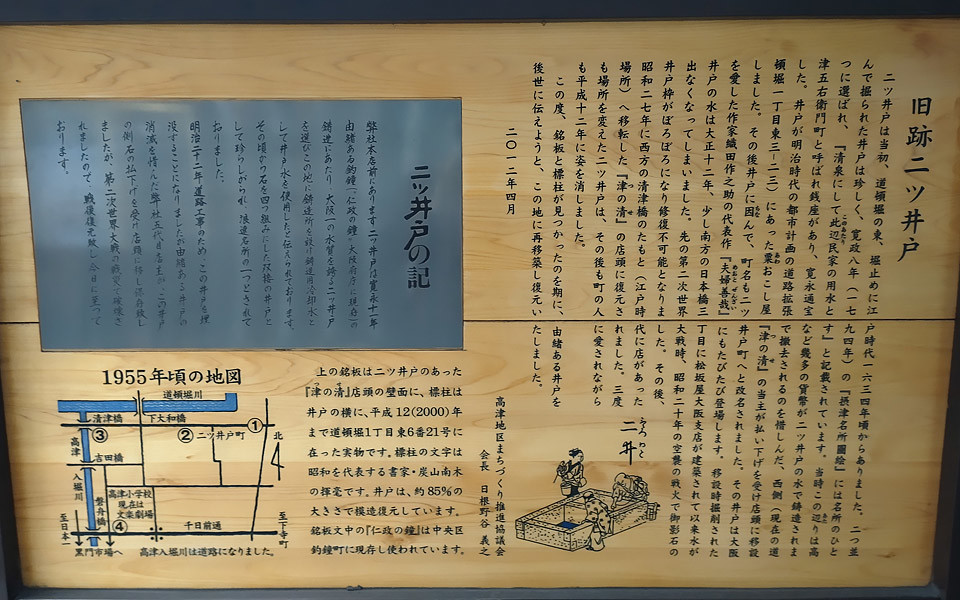 旧跡二ツ井戸
二ツ井戸は当初、道頓堀の東、堀止めに江戸時代一六三四年頃からありました。二つ並
んで掘られた井戸は珍しく、寛政八年（一七九四年）の『摂津名所圖絵』には名所のひと
つに選ばれ、『清泉にして此辺民家の用水とす』と記載されています。当時この辺りは高
津五右衛門町と呼ばれ銭座があり、寛永通宝など幾多の貨幣が二ツ井戸の水で鋳造されま
した。井戸が明治時代の都市計画の道路拡張で撤去されるのを惜しんだ、西側（現在の道
頓堀一丁目東三ー一三）にあった粟おこし屋『津の清』の当主が払い下げを受け店頭に移設
しました。その後井戸に因んで、町名も二ツ井戸町へと改名されました。その井戸は大阪
を愛した作家織田作之助の代表作『夫婦善哉』にもたびたび登場します。移設時掘削された
井戸の水は大正十二年、少し南方の日本橋三丁目に松坂屋大阪支店が建築されて以来水が
出なくなってしまいました。先の第二次世界大戦時、昭和二十年の空襲の戦火で御影石の
井戸枠がぼろぼろになり修復不可能となりました。その後、
昭和二七年に西方の清津橋のたもと（江戸時代に店があった
場所）へ移転した『津の清』の店頭に復元されました。三度
も場所を変えた二ツ井戸は、その後も町の人に愛されながら
も平成十二年に姿を消しました。
この度、銘板と標柱が見つかったのを期に、由緒ある井戸を
後世に伝えようと、この地に再移築し復元いたしました。
二〇一二年四月
高津地区まちづくり推進協議会
会長 日根野谷 義之
二井
ふたつゐど
二ッ井戸の記
弊社本店前にあります二ッ井戸は寛永十一年
由緒ある釣鐘（仁政の鐘・大阪府庁に現存）の
鋳造にあたり、大阪一の水質を誇る二ッ井戸
を選びこの地に鋳造所を設け鋳造用冷却水と
して井戸水を使用したと伝えられております。
その頃から石を四つ組みにした双接の井戸と
して珍しがられ、浪速名所の一つとされて
おりました。
明治二十二年道路工事のため、この井戸を埋
没することになりましたが由緒ある井戸の
消滅を惜んだ弊社五代目店主がこの井戸
の側石の払下げを受け店頭に移し保存致し
ましたが、第二次世界大戦の戦災で破壊さ
れましたので、戦後復元致し今日に至って
おります。
上の銘板は二ツ井戸のあった
『津の清』店頭の壁面に、標柱は
井戸の横に、平成12(2000)年
まで道頓堀1丁目東6番21号に
在った実物です。標柱の文字は
昭和を代表する書家・炭山南木
の揮毫です。井戸は、約85%の
大きさで模造復元しています。
銘板文中の『仁政の鐘』は中央区
釣鐘町に現存し使われています。
1955年頃の地図
道頓堀川
清津橋
下大和橋
①
②
③
二ツ井戸町
北
高津
入堀川
吉田橋
高津小学校
現在は
文楽劇場
④
盤舟橋
千日前通
至日本一
至下寺町
黒門市場へ
高津入堀川は道路になりました。